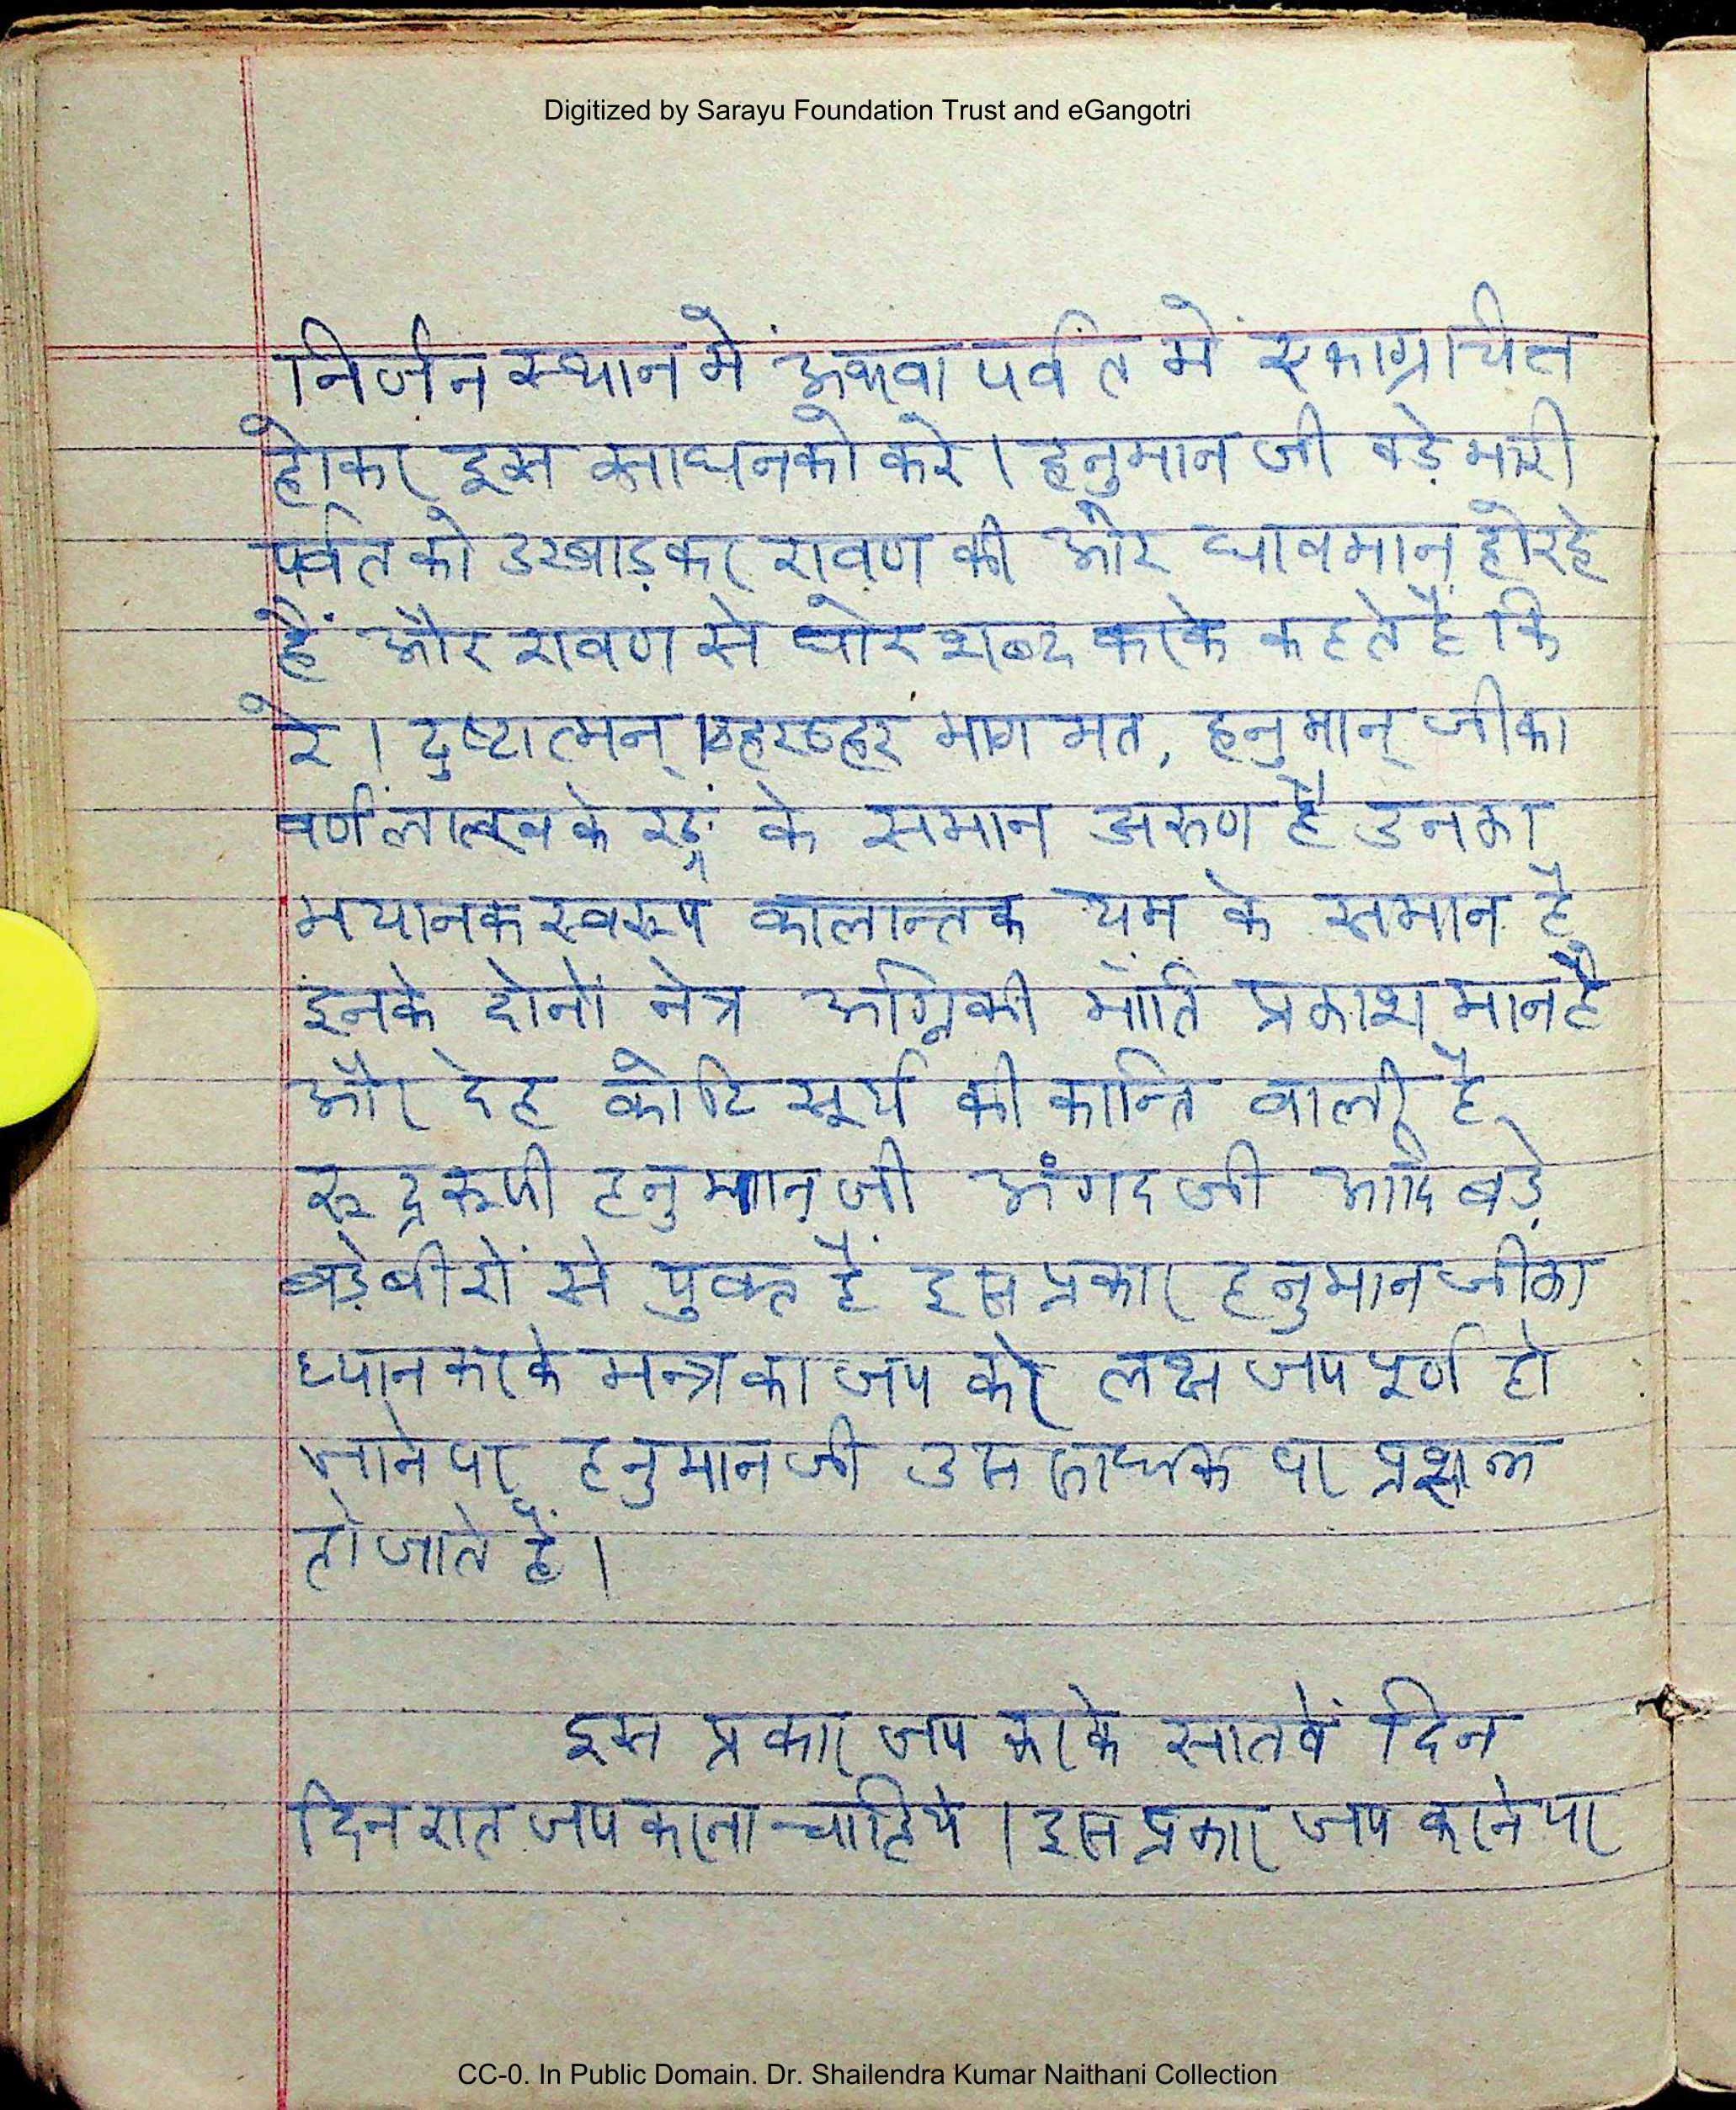 Digitized by Sarayu Foundation Trust and eGangotri
निर्जन स्थान में अथवा पर्वत में एकाग्रचित्त
होकर इस साधनको करे। हनुमान जी बड़े भारी
पर्वत को उखाड़कर रावण की ओर धावमान हो रहे
हैं और रावण से घोर शब्द करके कहते हैं कि
रे। दुष्टात्मन्। ठहर ठहर भाग मत, हनुमान् जीका
वर्ण के रङ्ग के समान अरुण है उनका
भयानक स्वरूप कालान्तक यम के समान है
इनके दोनों नेत्र अग्निकी भांति प्रकाशमान है
और देह कोटि सूर्य की कान्ति वाली है
रुद्ररूपी हनुमान जी अंगद जी आदि बड़े
बड़े बीरों से युक्त हैं इस प्रकार हनुमान जीका
ध्यान करके मन्त्र का जप करे लक्ष जप पूर्ण हो
जाने पर हनुमान जी उस साधक पर
हो जाते हैं।
इस प्रकार जप करके सातवें दिन
दिन रात जप करना चाहिये। इस प्रकार जप करने पर
CC-0. In Public Domain. Dr. Shailendra Kumar Naithani Collection